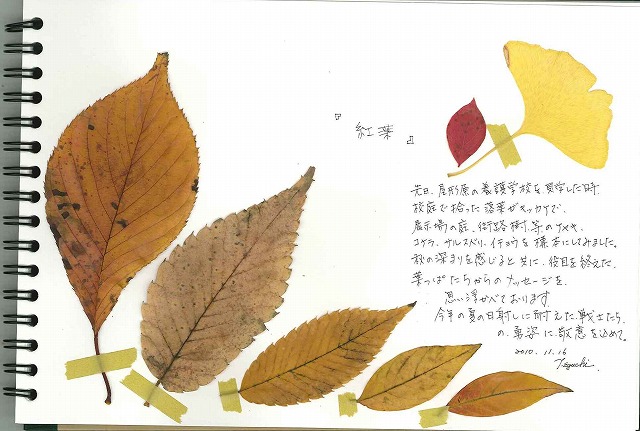 『紅葉』
先日、屋形原の養護学校を見学した時
校庭で拾った落葉がキッカケで、
展示場の庭、街路樹、等のケヤキ、
コナラ、サルスベリ、イチョウを標本にしてみました。
秋の深まりを感じると共に、役目を終えた、
葉っぱたちからのメッセージを、
思い浮かべております
今年の夏の日射しに耐えた、戦士たち、
の、勇姿に、敬意を込めて。
2010.11.16
Teguchi